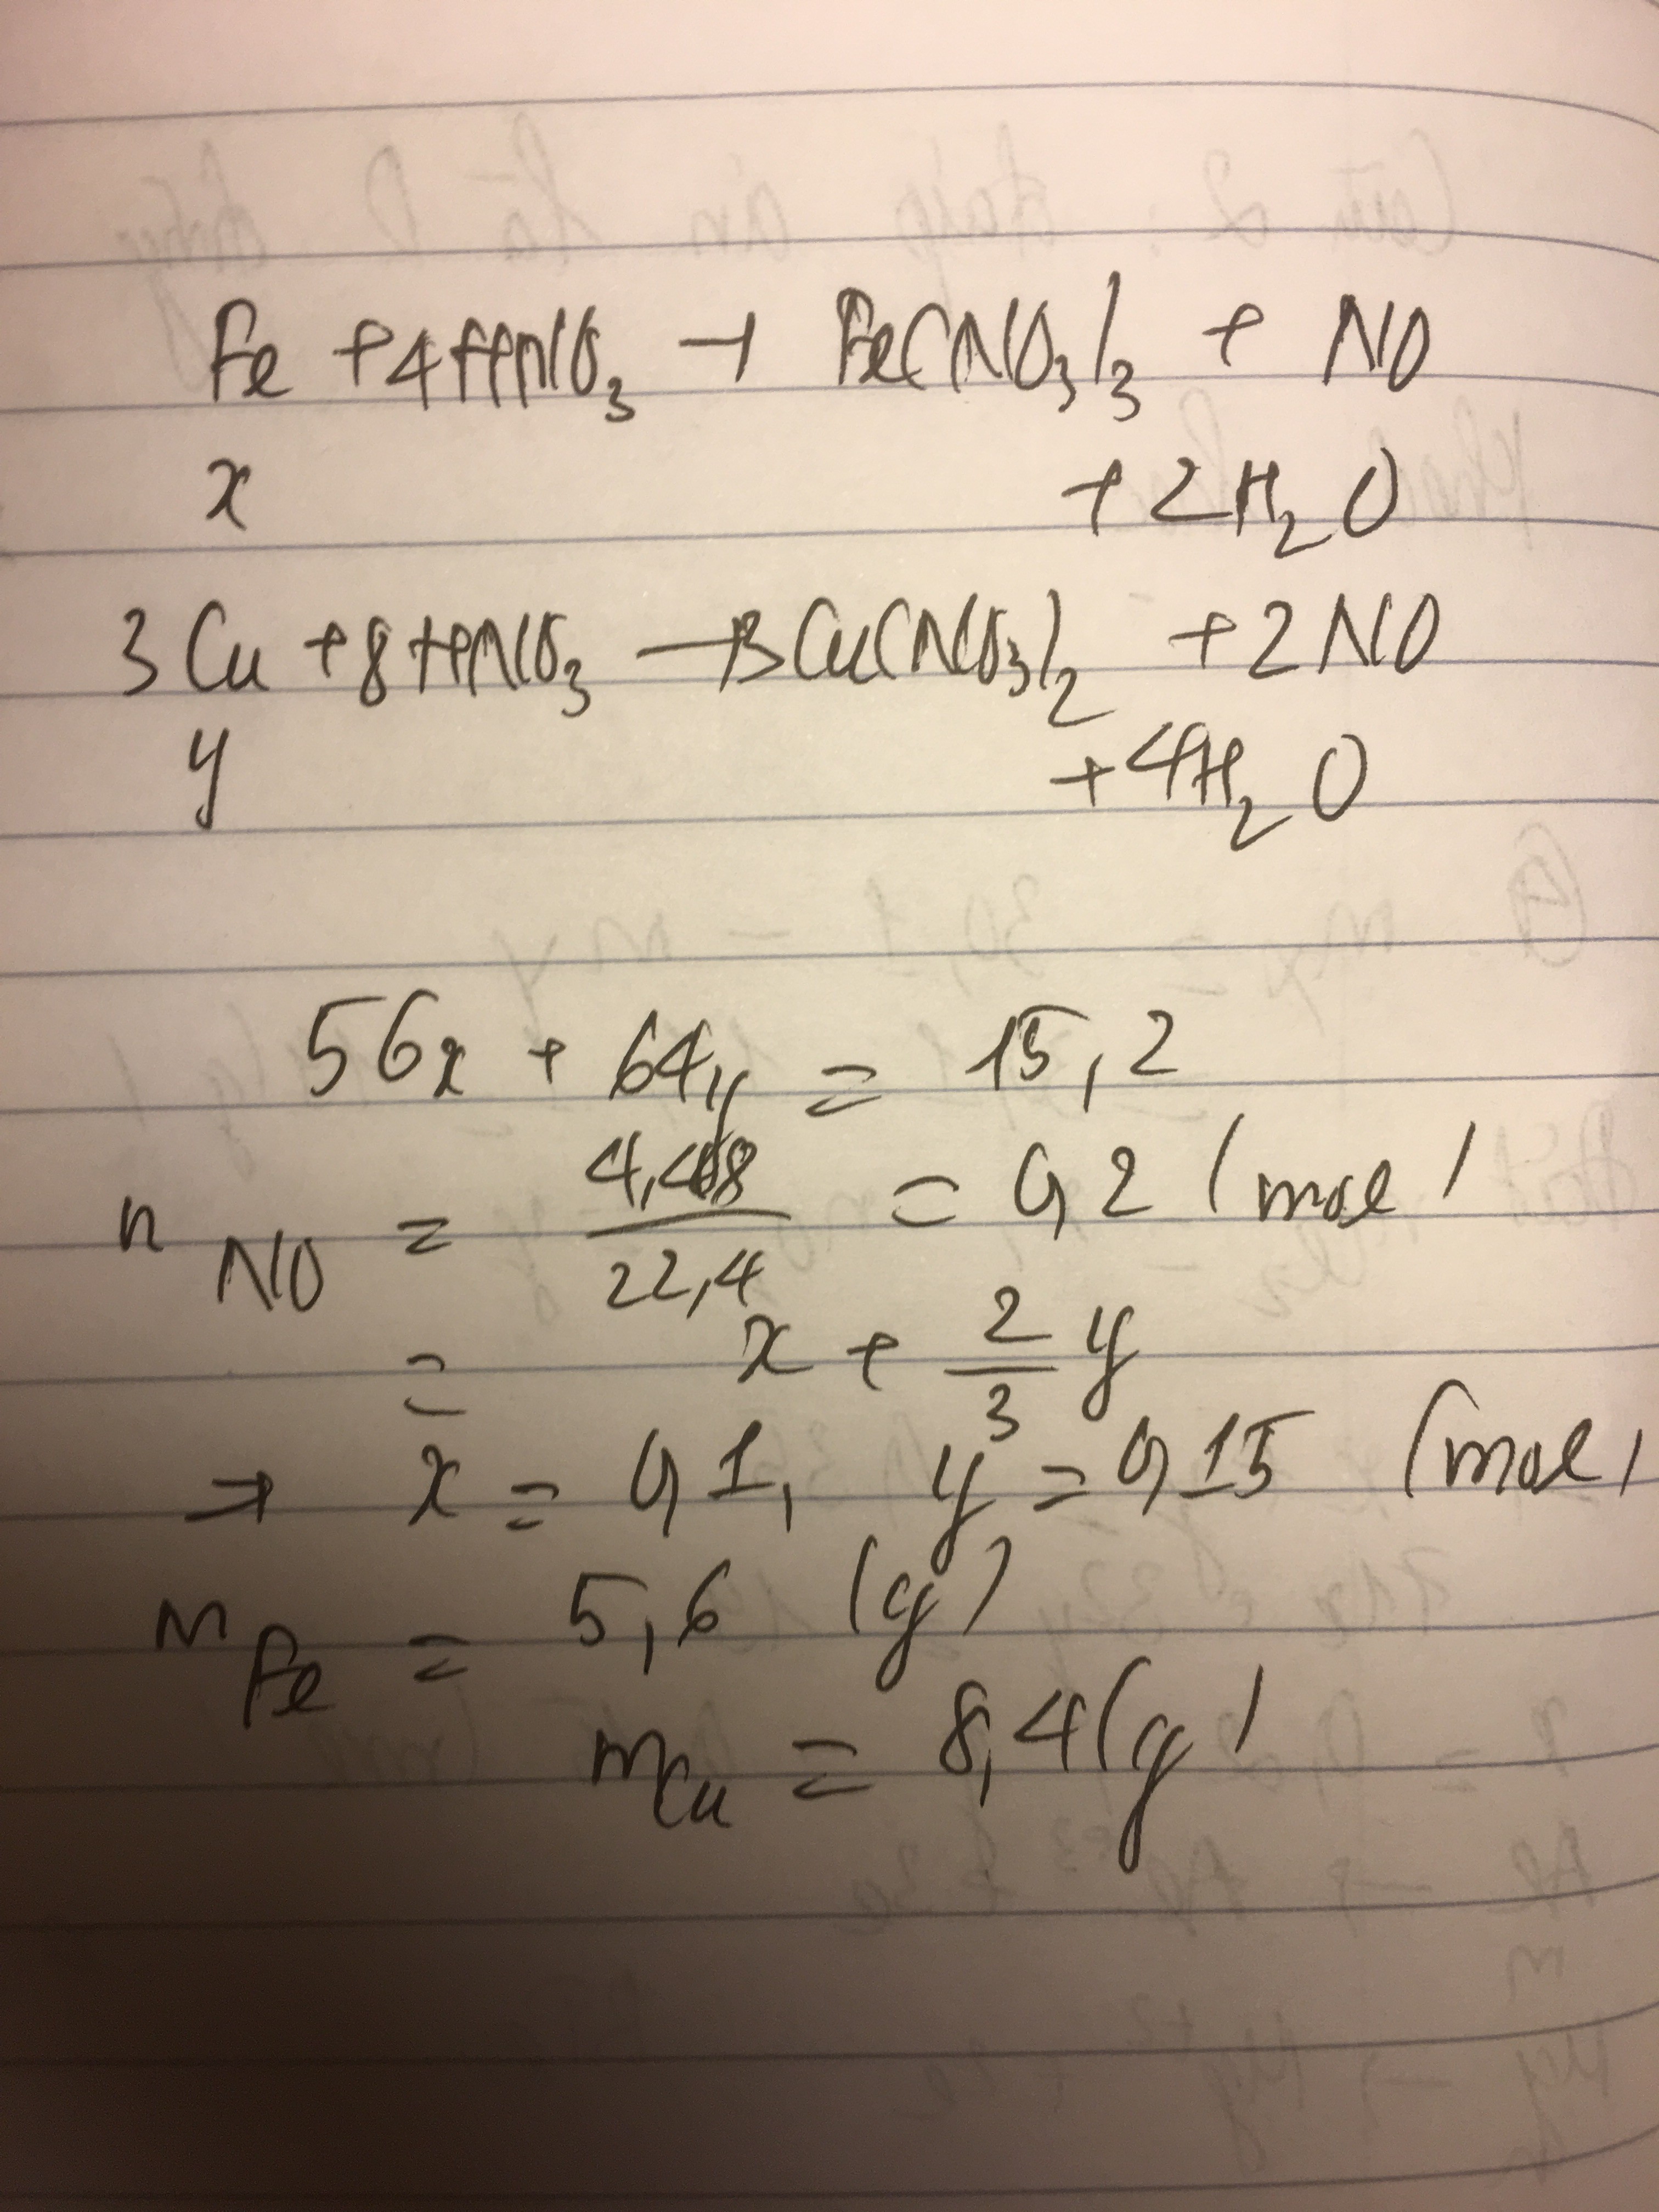 Fe + 4HNO3 → Fe(NO3)3 + NO
x + 2H2O
3Cu + 8HNO3 → 3Cu(NO3)2 + 2NO
y + 4H2O
56x + 64y = 15,2
nNO = 4,48/22,4 = 0,2 (mol)
= x + 2/3 y
⇒ x = 0,1, y = 0,15 (mol)
mFe = 5,6 (g)
mCu = 8,4 (g)